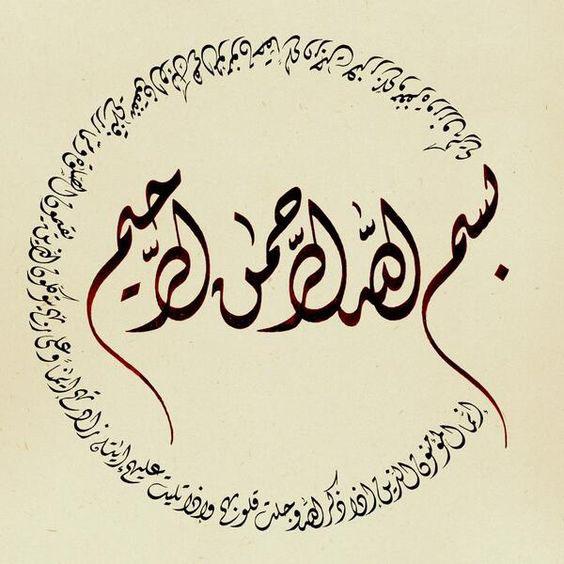 بسم الله الرحمن الرحيم
إنما المؤمنون الذين إذا ذكر الله وجلت قلوبهم وإذا تليت عليهم إيته زادتهم إيمنا وعلى ربهم يتوكلون الذين يقيمون الصلوة ومما رزقنهم ينفقون أولئك هم المؤمنون حقا لهم درجت عند ربهم ومغفرة ورزق كريم